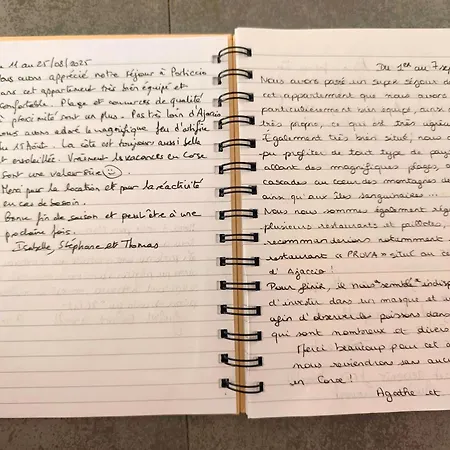 u 11 au 25/08/2025
ous avons apprécié notre séjour à Porticcio
ans cet appartement très bien équipé et
onfortable. Plage et commerces de qualité
à proximité sont un plus. Pas très loin d'Ajaccio
nous avons adoré le magnifique feu d'artifice
du 15 Août. La côte est toujours aussi belle
et ensoleillée. Vraiment les vacances en Corse
sont une valeur sûre ☺.
Merci pour la location et pour la réactivité
en cas de besoin.
Bonne fin de saison et peut-être à une
prochaine fois.
Isabelle, Stéphane et Thomas
Du 1er au 7 sep
Nous avons passé un super séjour da
cet appartement que nous avons
particulièrement bien équipé, ainsi
très propre, ce qui est très agréa
Également très bien situé, nous a
pu profiter de tout type de pay
allant des magnifiques plages, a
cascades au coeur des montagnes de
ainsi qu'aux îles sanguinaires...
Nous nous sommes également réga
plusieurs restaurants et paillotes,
recommanderions notamment
restaurant « PRUVA » situé au ce
d'Ajaccio!
Pour finir, il nous semble indisp
d'investir dans un masque et u
afin d'observer les poissons dans
qui sont nombreux et divers
Merci beaucoup pour cet a
nous reviendrons sans auc
en Corse!
Agathe et